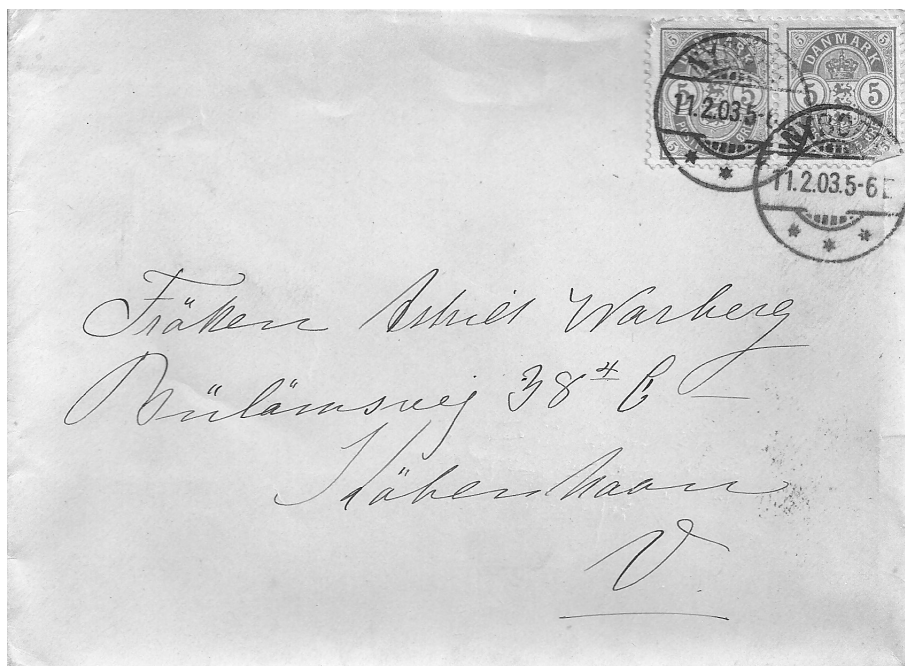 DANMARK DANMARK
5 5 5 5
11.2.03.5-6
11.2.03.5-6 E
Fröken Astrid Warberg
Bülowsvej 38 4 C
Köbenhavn
V.